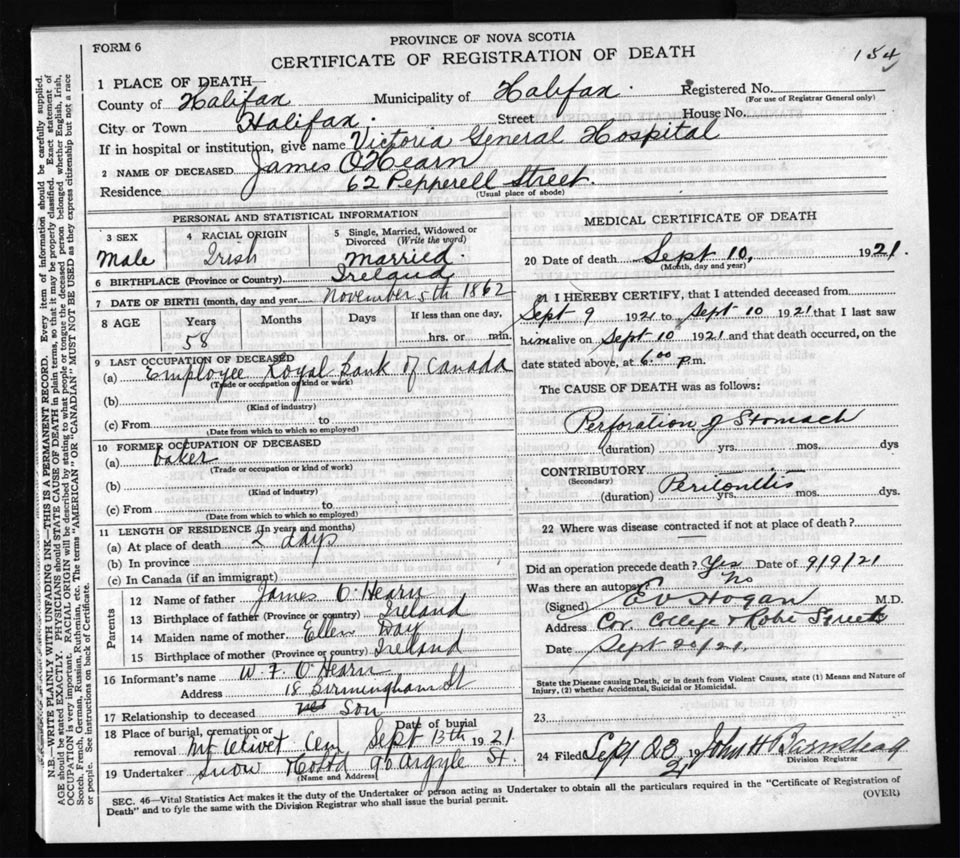 FORM 6
PROVINCE OF NOVA SCOTIA
CERTIFICATE OF REGISTRATION OF DEATH
154
1 PLACE OF DEATH
County of Halifax Municipality of Halifax. Registered No.
(For use of Registrar General only)
City or Town Halifax. Street House No.
If in hospital or institution, give name Victoria General Hospital
2 NAME OF DECEASED James O'Hearn
Residence 62 Pepperell Street.
(Usual place of abode)
PERSONAL AND STATISTICAL INFORMATION
3 SEX 4 RACIAL ORIGIN 5 Single, Married, Widowed or Divorced (Write the word)
Male Irish Married.
6 BIRTHPLACE (Province or Country) Ireland
7 DATE OF BIRTH (month, day and year November 5th 1862
8 AGE Years Months Days If less than one day,
58 hrs. or min.
9 LAST OCCUPATION OF DECEASED
(a) Employee Royal Bank of Canada
(Trade or occupation or kind or work)
(b)
(Kind of industry)
(c) From to
(Date from which to which so employed)
10 FORMER OCCUPATION OF DECEASED
(a) baker
(Trade or occupation or kind of work)
(b)
(Kind of industry)
(c) From to
(Date from which to which so employed)
11 LENGTH OF RESIDENCE (In years and months)
(a) At place of death 2 days
(b) In province
(c) In Canada (if an immigrant)
Parents
12 Name of father James O'Hearn
13 Birthplace of father (Province or country) Ireland
14 Maiden name of mother Ellen Day
15 Birthplace of mother (Province or country) Ireland
16 Informant's name W. F. O'Hearn
Address 18 Birmingham St
17 Relationship to deceased Son
18 Place of burial, cremation or removal Mt Olivet Cem Date of burial Sept 13th 1921
19 Undertaker Snow 90 Argyle St.
(Name and Address)
MEDICAL CERTIFICATE OF DEATH
20 Date of death Sept 10, 1921.
(Month, day and year)
21 I HEREBY CERTIFY, that I attended deceased from
Sept 9 1921 to Sept 10 1921 that I last saw
him alive on Sept 10 1921 and that death occurred, on the
date stated above, at 6.00 p.m.
The CAUSE OF DEATH was as follows:
Perforation of Stomach
(duration) yrs. mos. dys
CONTRIBUTORY Peritonitis
(Secondary)
(duration) yrs. mos. dys.
22 Where was disease contracted if not at place of death?
Did an operation precede death? Yes Date of 9/9/21
Was there an autopsy No
(Signed) E V Hogan M.D.
Address Cor. College & Robie Streets
Date Sept 20/21.
State the Disease causing Death, or in death from Violent Causes, state (1) Means and Nature of
Injury, (2) whether Accidental, Suicidal or Homicidal.
23
24 Filed Sept 23 1921 John H Barnstead
Division Registrar
SEC. 46—Vital Statistics Act makes it the duty of the Undertaker or person acting as Undertaker to obtain all the particulars required in the "Certificate of Registration of
Death" and to fyle the same with the Division Registrar who shall issue the burial permit.
(OVER)
N.B.—WRITE PLAINLY WITH UNFADING INK—THIS IS A PERMANENT RECORD. Every item of information should be carefully supplied.
AGE should be stated EXACTLY. PHYSICIANS should STATE CAUSE OF DEATH in plain terms, so that it may be properly classified. Exact statement of
OCCUPATION is very important. RACIAL ORIGIN will be described by stating to what people or tongue the deceased person belonged whether English, Irish,
Scotch, French, German, Russian, Ruthenian, etc. The terms "AMERICAN" OR "CANADIAN" MUST NOT BE USED as they express citizenship but not a race
or people. See instructions on back of Certificate.